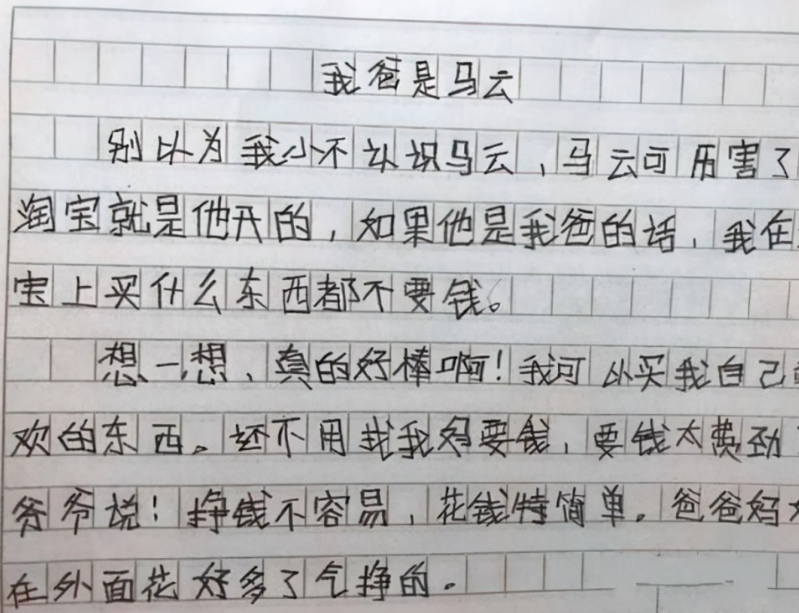 我爸是马云
别以为我小不认识马云，马云可历害了
淘宝就是他开的，如果他是我爸的话，我在
宝上买什么东西都不要钱。
想一想，真的好棒啊！我可以买我自己
欢的东西。还不用找我妈要钱，要钱太费劲
爷爷说！挣钱不容易，花钱特简单。爸爸妈
在外面花好多了气挣的。